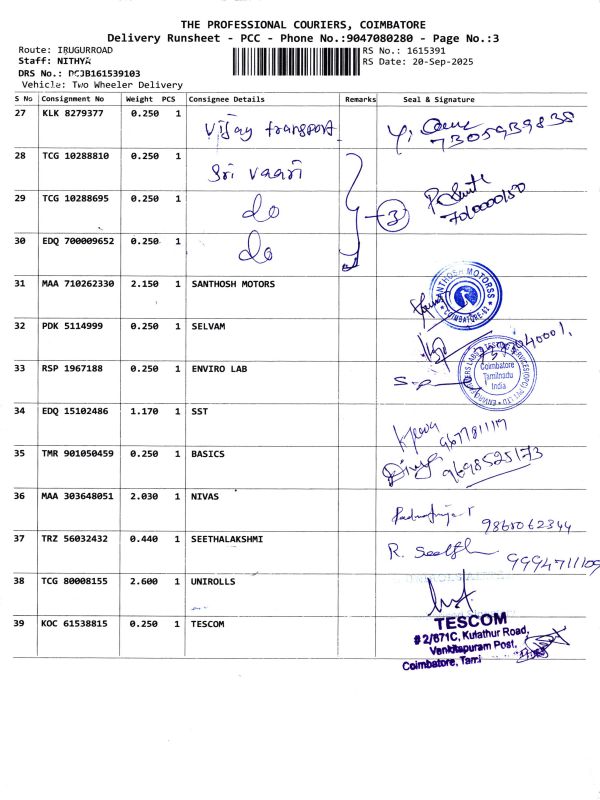 THE PROFESSIONAL COURIERS, COIMBATORE
Delivery Runsheet - PCC - Phone No.:9047080280 - Page No.:3
Route: IRUGURROAD
RS No.: 1615391
Staff: NITHYA
RS Date: 20-Sep-2025
DRS No.: PCJB161539103
Vehicle: Two Wheeler Delivery
S No Consignment No Weight PCS Consignee Details Remarks Seal & Signature
27 KLK 8279377 0.250 1 Vijay transport 7305939838
28 TCG 10288810 0.250 1 Sri vaari
29 TCG 10288695 0.250 1 do 3
30 EDQ 700009652 0.250 1 do
31 MAA 710262330 2.150 1 SANTHOSH MOTORS
SANTHOSH MOTORSS
COIMBATORE
32 PDK 5114999 0.250 1 SELVAM
33 RSP 1967188 0.250 1 ENVIRO LAB
Coimbatore
Tamilnadu
India
34 EDQ 15102486 1.170 1 SST
35 TMR 901050459 0.250 1 BASICS 9698525173
36 MAA 303648051 2.030 1 NIVAS 9865062344
37 TRZ 56032432 0.440 1 SEETHALAKSHMI 9994711109
38 TCG 80008155 2.600 1 UNIROLLS
39 KOC 61538815 0.250 1 TESCOM
TESCOM
# 2/671C, Kulathur Road,
Venkitapuram Post,
Coimbatore,